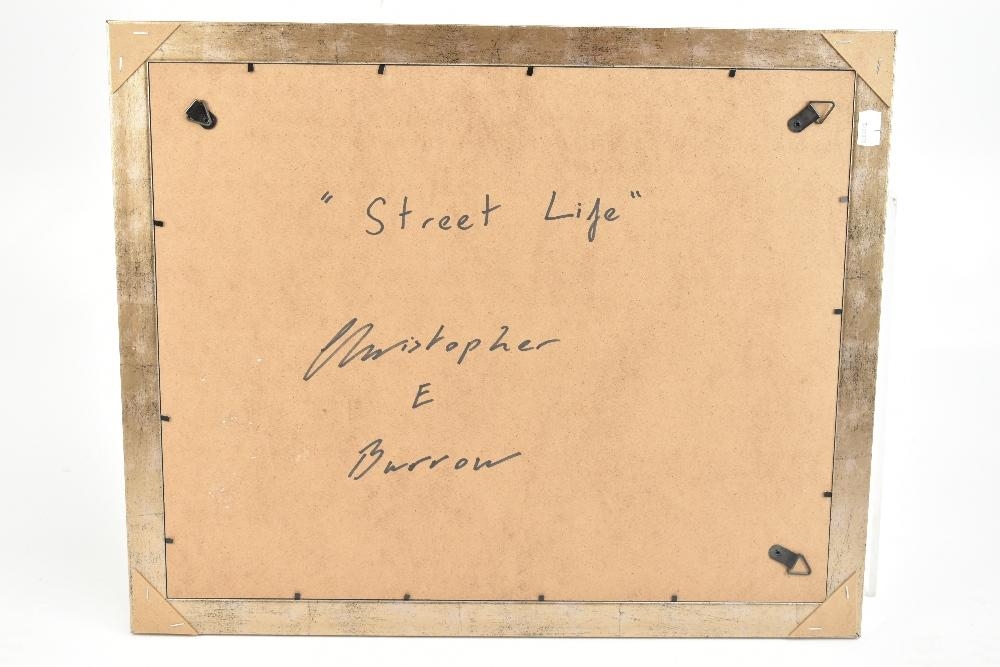 "Street Life"
Christopher
E
Burrow